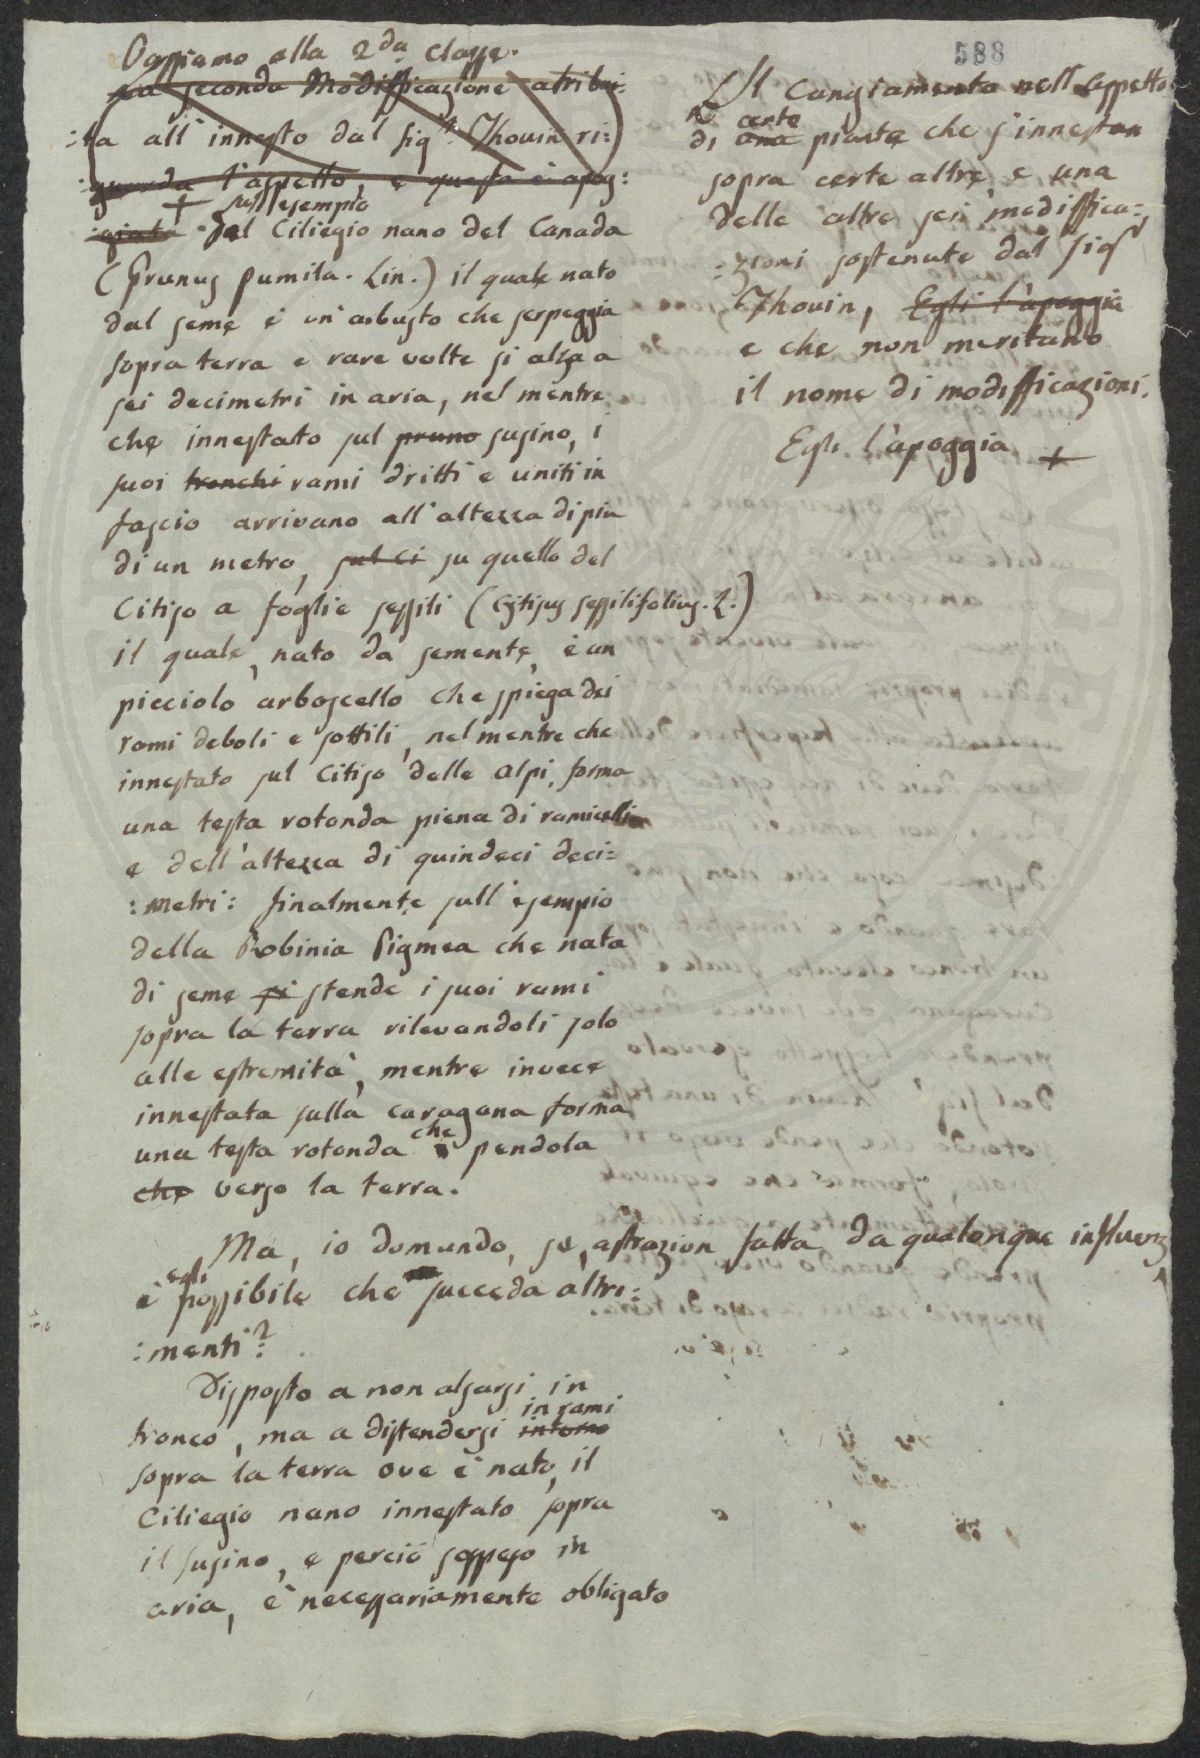 588
Passiamo alla 2da Classe.
La seconda Modifficazione atribui:
:ta all'innesto dal sigr. Thouin ri:
:guarda l'aspetto, e questa è apog:
+ sull'esempio
:giata del Ciliegio nano del Canada
(Prunus pumila. Lin.) il quale nato
dal seme è un'arbusto che serpeggia
sopra terra e rare volte si alza a
sei decimetri in aria, nel mentre
che innestato sul pruno susino, i
suoi tronchi rami dritti e uniti in
fascio arrivano all'altezza di piu
di un metro, sul ci su quello del
Citiso a foglie sessili (Cytisus sessilifolius. L.)
il quale, nato da semente, è un
picciolo arboscello che spiega dei
rami deboli e sottili, nel mentre che
innestato sul Citiso delle alpi, forma
una testa rotonda piena di ramicelli
e dell'altezza di quindeci deci:
:metri: finalmente sull'esempio
della Robinia Pigmea che nata
di seme si stende i suoi rami
sopra la terra rilevandoli solo
alle estremità, mentre invece
innestata sulla caragana forma
una testa rotonda che pendola
che verso la terra.
Ma, io domando, se, astrazion fatta da qualonque influenz
egli
è possibile che succeda altri:
:menti?
Disposto a non alzarsi in
in rami
tronco, ma a distendersi intorno
sopra la terra ove è nato, il
Ciliegio nano innestato sopra
il susino, e perciò sospeso in
aria, è necessariamente obligato
Il Cangiamento nell'aspetto
certe
di una piante che s'innestan
sopra certe altre, e una
delle altre sei modiffica:
:zioni sostenute dal sigr
Thouin, Egli l'apoggia
e che non meritano
il nome di modifficazioni.
Egli l'apoggia +